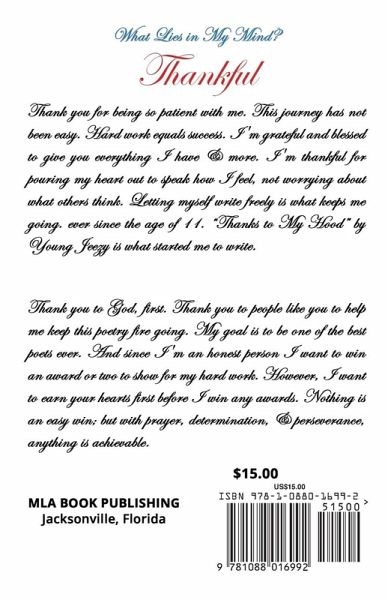 What Lies in My Mind?
Thankful
Thank you for being so patient with me. This journey has not
been easy. Hard work equals success. I'm grateful and blessed
to give you everything I have & more. I'm thankful for
pouring my heart out to speak how I feel, not worrying about
what others think. Letting myself write freely is what keeps me
going. ever since the age of 11. "Thanks to My Hood" by
Young Jeezy is what started me to write.
Thank you to God, first. Thank you to people like you to help
me keep this poetry fire going. My goal is to be one of the best
poets ever. And since I'm an honest person I want to win
an award or two to show for my hard work. However, I want
to earn your hearts first before I win any awards. Nothing is
an easy win; but with prayer, determination, & perseverance,
anything is achievable.
$15.00
US$15.00
ISBN 978-1-0880-1699-2
51500
MLA BOOK PUBLISHING
Jacksonville, Florida
9 781088 016992